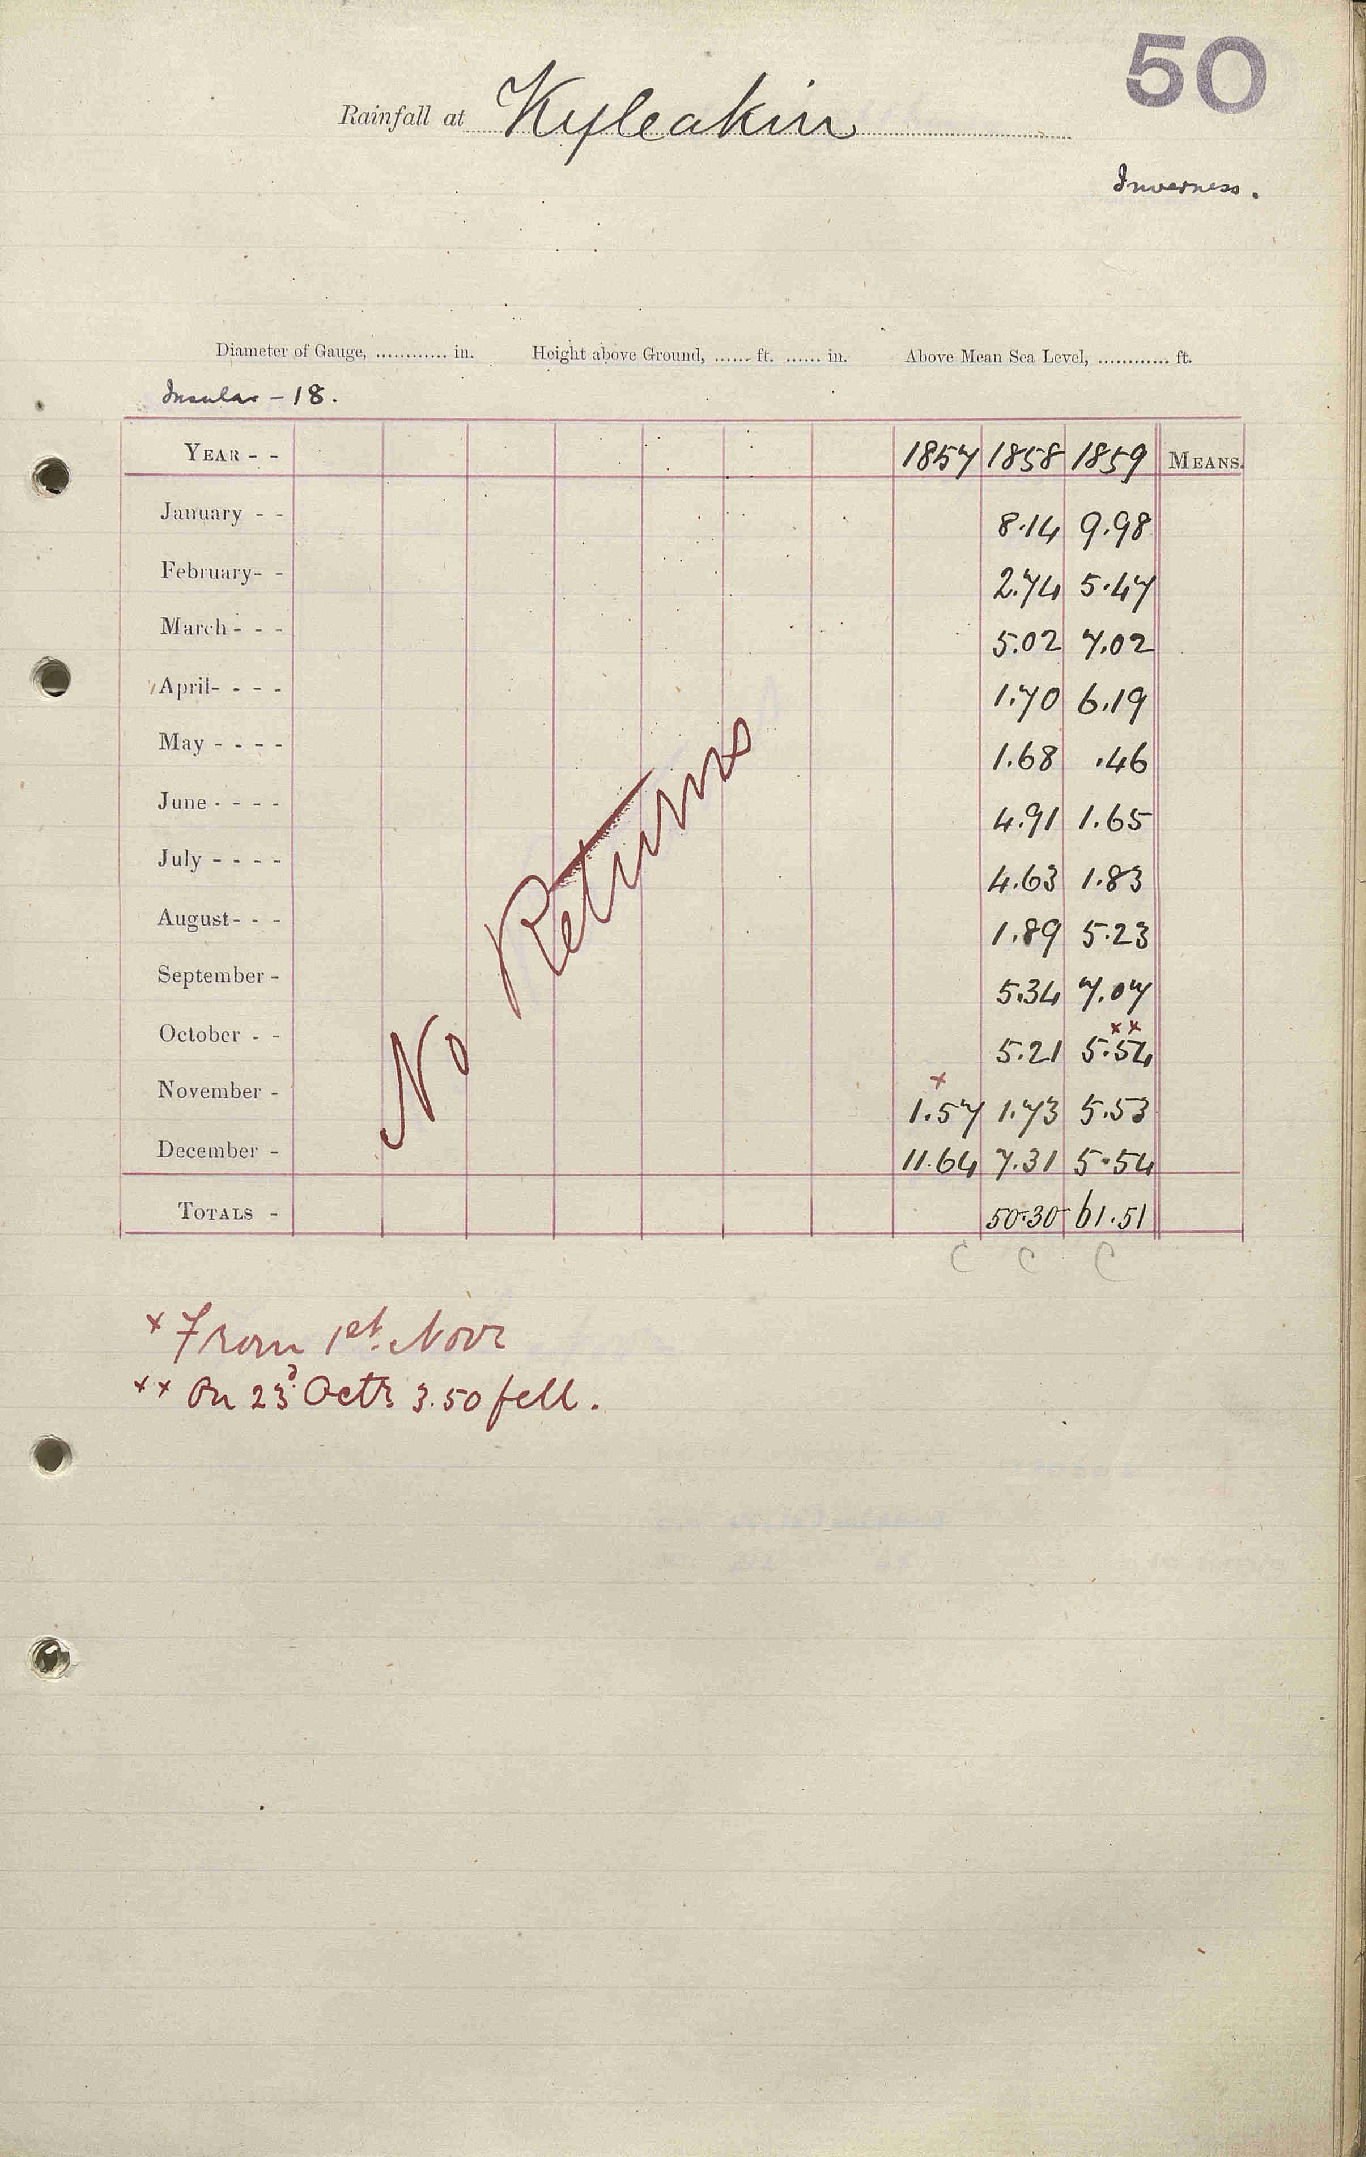 50
Rainfall at Kyleakin
Inverness.
Diameter of Gauge, ............ in. Height above Ground, ...... ft. ...... in. Above Mean Sea Level, ............ ft.
Insular - 18.
YEAR - - 1857 1858 1859 MEANS.
January - - 8.14 9.98
February - - 2.74 5.47
March - - - 5.02 7.02
April - - - - 1.70 6.19
May - - - - 1.68 .46
June - - - - 4.91 1.65
July - - - - 4.63 1.83
August - - - 1.89 5.23
September - 5.34 7.07
October - - 5.21 5.54 xx
November - x 1.57 1.73 5.53
December - 11.64 7.31 5.54
TOTALS - 50.30 61.51
C C C
No Returns
x From 1st. Novr
xx On 23d Octr 3.50 fell.